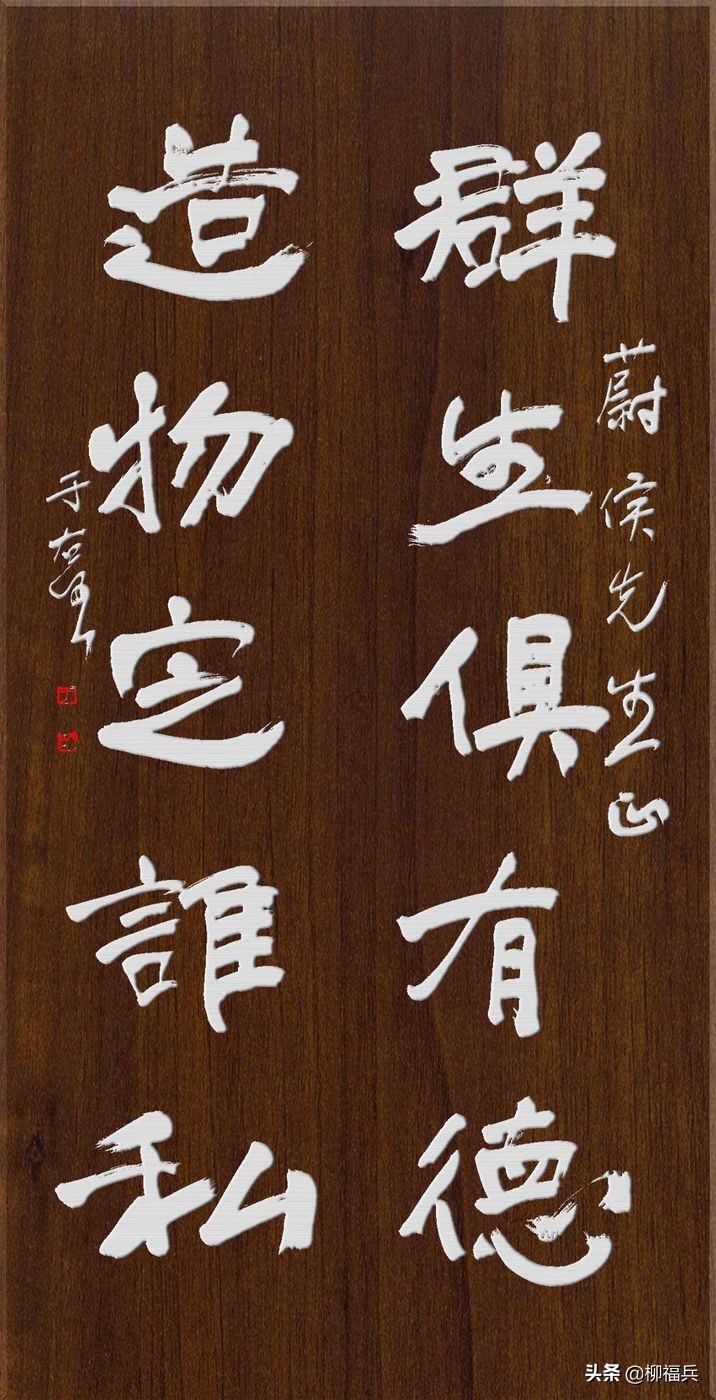 蔚侯先生正
群生俱有德
造物定誰私
于右任
头条 @柳福兵